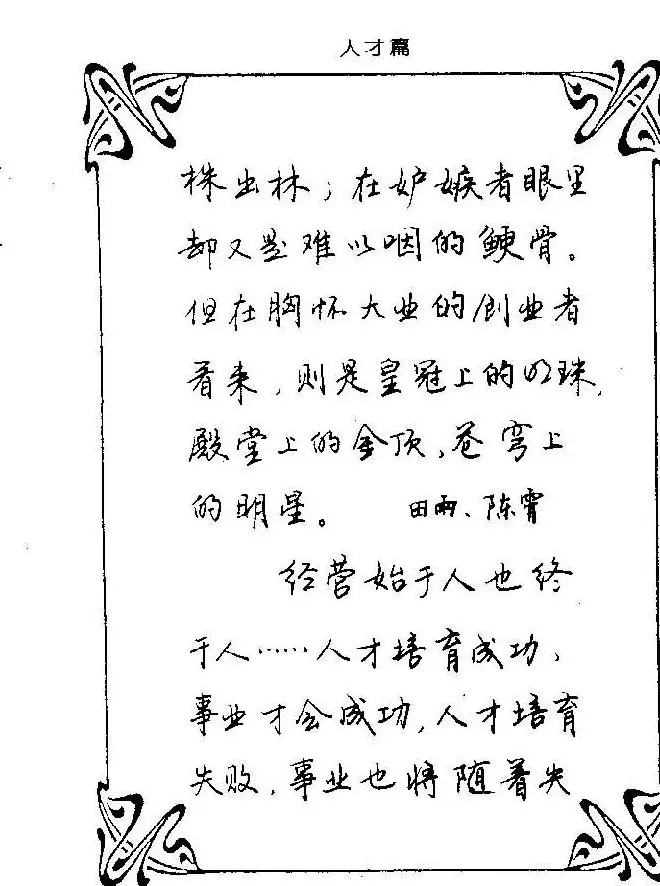 人才篇
株出林；在妒嫉者眼里
却又是难以咽的鲠骨。
但在胸怀大业的创业者
看来，则是皇冠上的明珠，
殿堂上的金顶，苍穹上
的明星。 田雨、陈霄
经营始于人也终
于人……人才培育成功，
事业才会成功，人才培育
失败，事业也将随着失